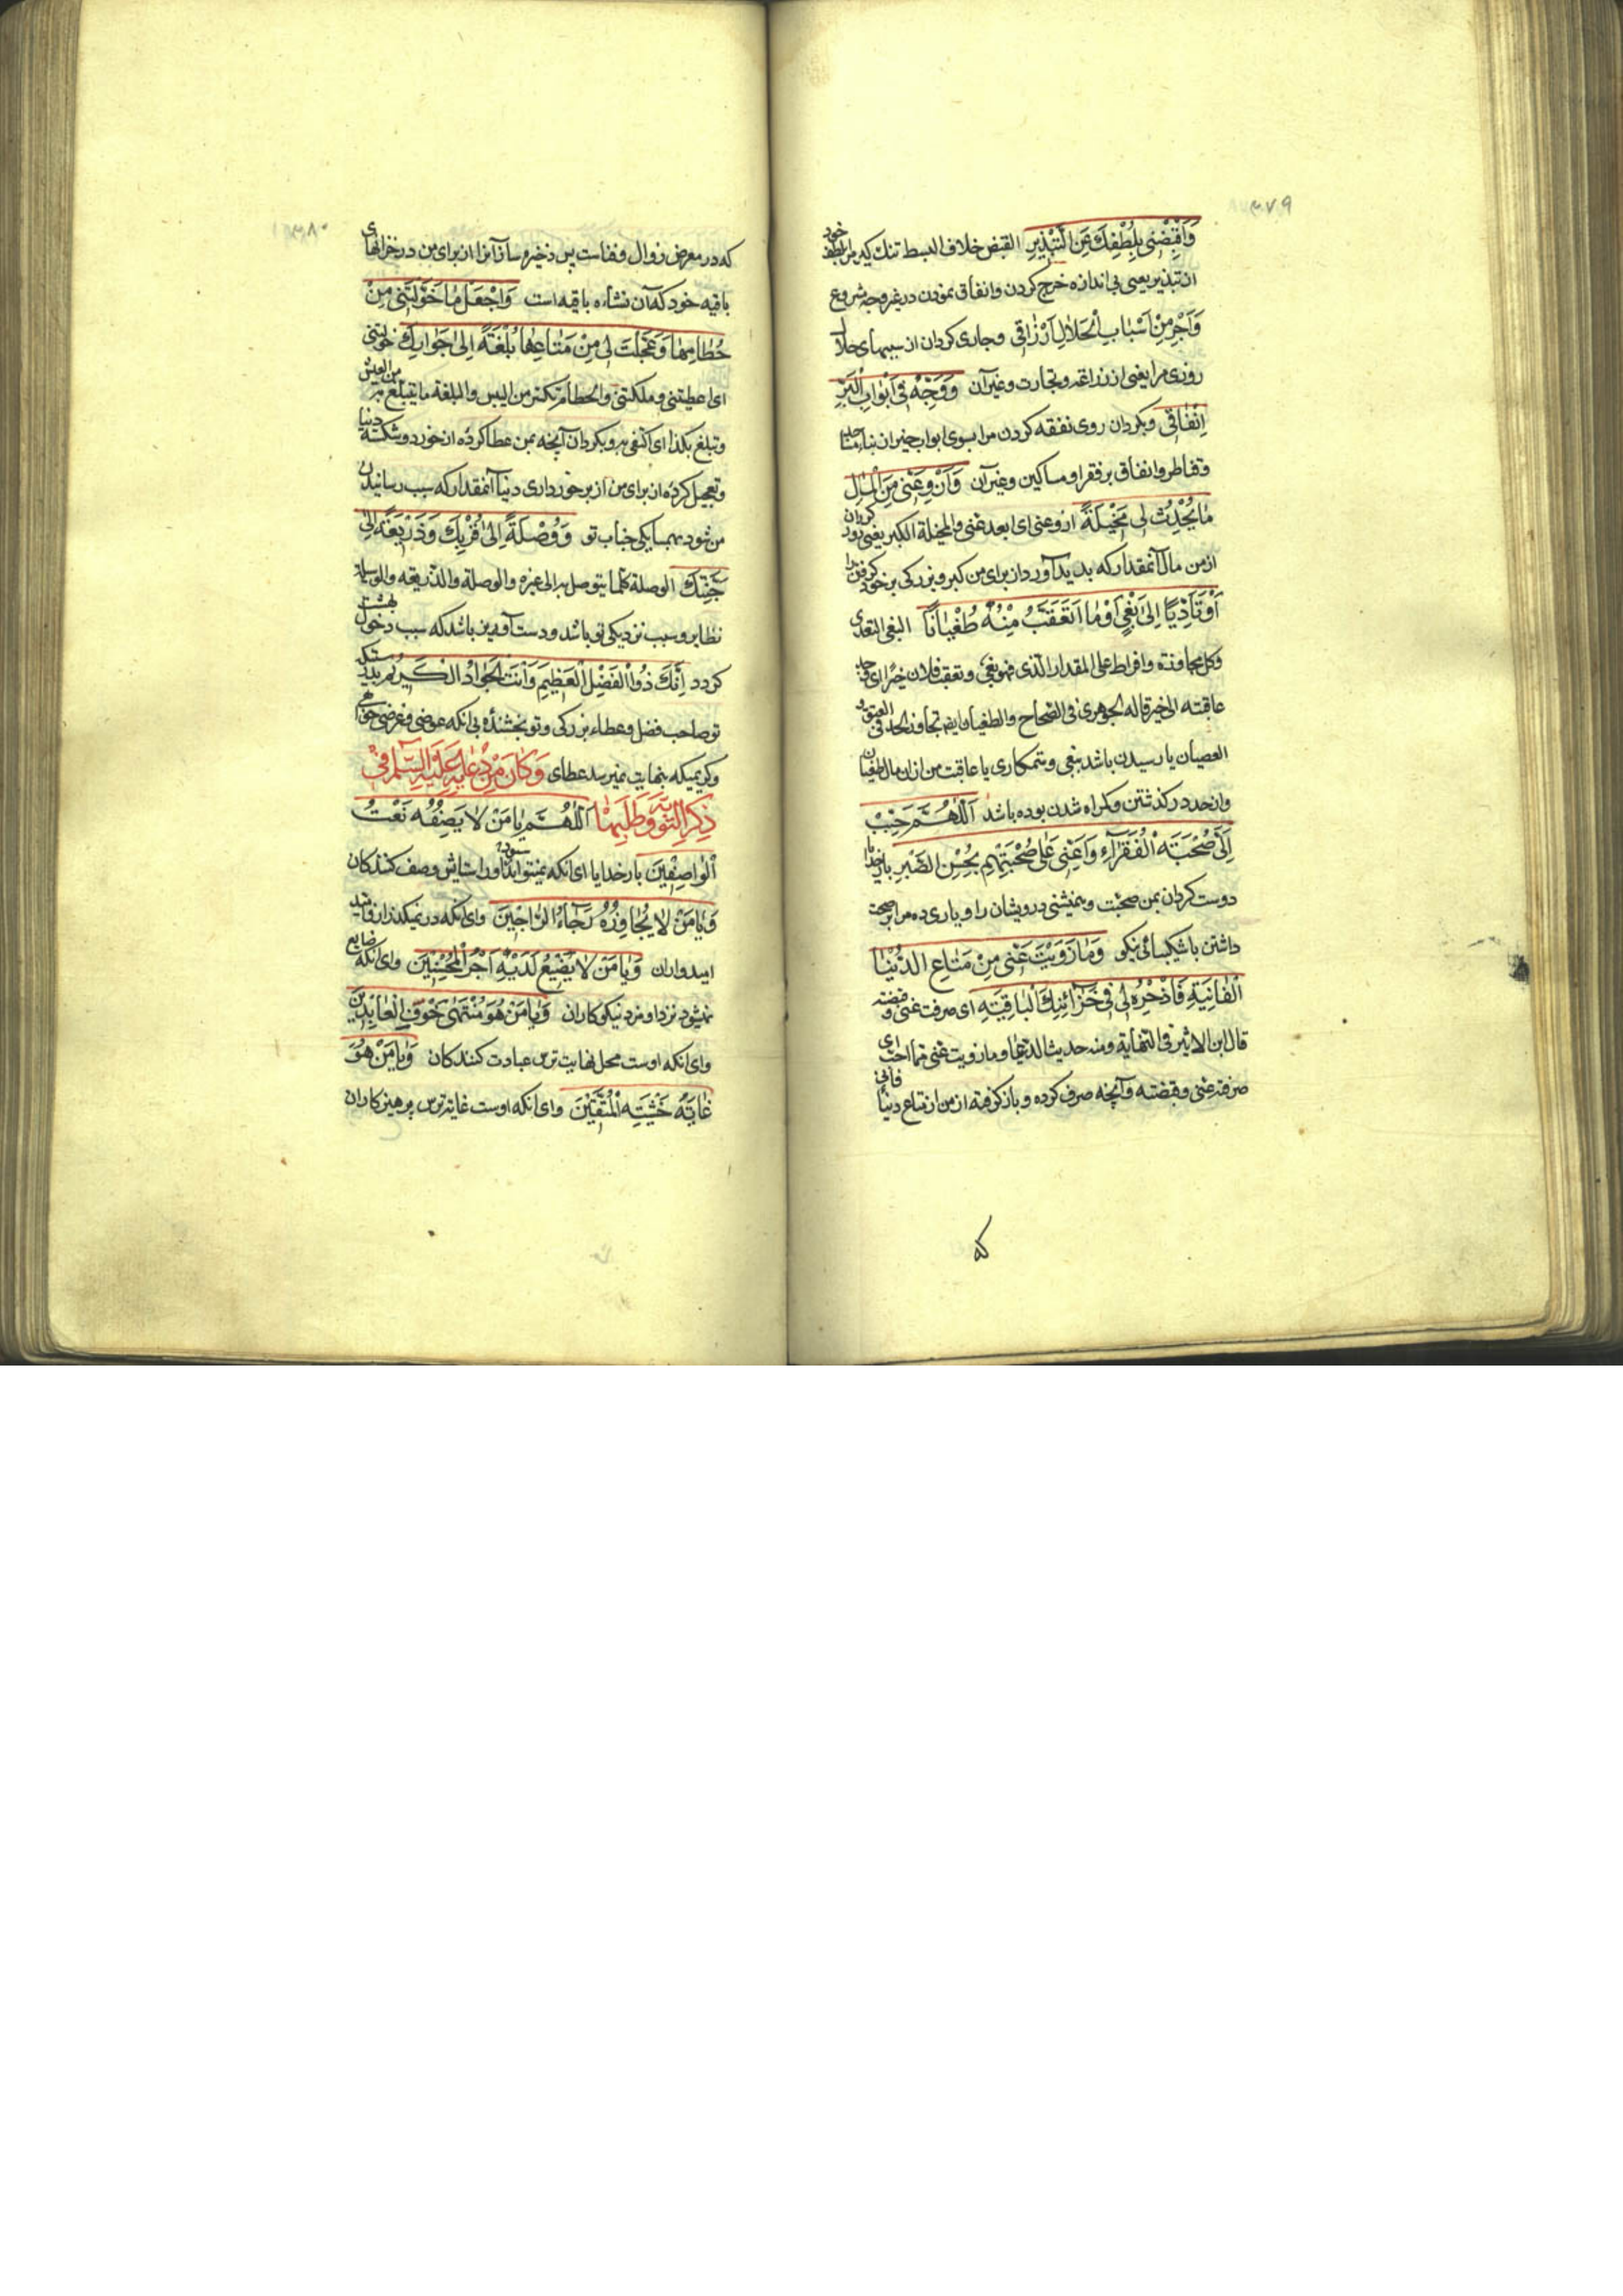 ۳۷۹
وَاقْبِضْنِی بِلُطْفِكَ عَنِ التَّبْذِیرِ القبض خلاف البسط تنك كیر مرا بلطف خود
از تبذیر یعنی بی اندازه خرج کردن وانفاق نمودن در غیر وجه مشروع
وَاَجْرِ مِنْ اَسْبَابِ الْحَلَالِ اَرْزَاقِی وجاری کردان از سببهای حلال
روزی مرا یعنی از زراعة وتجارت وغیر آن وَوَجِّهْ فِی اَبْوَابِ الْبِرِّ
اِنْفَاقِی وبکردان روی نفقه کردن مرا بسوی ابواب خیر از بناء
وقناطر وانفاق بر فقرا ومساکین وغیر آن وَازْوِ عَنِّی مِنَ الْمَالِ
مَا یُحْدِثُ لِی مَخِیلَةً ازو عنی ای ابعد عنی والمخیلة الکبر یعنی دور کردان
از من مال آنمقدار که بدید آورد از برای من کبر وبزرکی بر خود کرفتن را
اَوْ تَأَدِّیًا اِلَی بَغْیٍ اَوْ مَا اَتَعَقَّبُ مِنْهُ طُغْیَانًا البغی التعدی
وکل مجاوزة وافراط علی المقدار الذی فهو بغی وتعقب فلان خیرا ای
عاقبته الی خیر قاله الجوهری فی الصحاح والطغیان ایضا تجاوز الحد فی
العصیان یا رسیدن باشد ببغی وستمکاری یا عاقبت من ازان مال طغیان
واز حد در کذشتن وکمراه شدن بوده باشد اَللّهُمَّ حَبِّبْ
اِلَیَّ صُحْبَةَ الْفُقَرَاءِ وَاَعِنِّی عَلَی صُحْبَتِهِمْ بِحُسْنِ الصَّبْرِ بار خدایا
دوست کردان بمن صحبت وهمنشینی درویشان را ویاری ده مرا بر صحبت
داشتن باشکیبائی نیکو وَمَا زَوَیْتَ عَنِّی مِنْ مَتَاعِ الدُّنْیَا
الْفَانِیَةِ فَاذْخَرْهُ لِی فِی خَزَائِنِكَ الْبَاقِیَةِ ای صرفت عنی وقبضته
قال ابن الاثیر فی النهایة ومنه حدیث الدعا وما زویت عنی مما احب ای
صرفته عنی وقبضته وآنچه صرف کرده وباز کرفته از من از متاع دنیا فانی
که
۳۸۰
که در معرض زوال وفناست پس ذخیره ساز آنرا از برای من در خزانهای
باقیه خود که آن نشاءه باقیه است وَاجْعَلْ مَا خَوَّلْتَنِی مِنْ
حُطَامِهَا وَعَجَّلْتَ لِی مِنْ مَتَاعِهَا بُلْغَةً اِلَی جَوَارِكَ خولتنی
ای اعطیتنی وملکتنی والحطام ما تکسر من الیبس والبلغة ما یتبلغ به من العیش
وتبلغ بکذا ای اکتفی به وبکردان آنچه بمن عطا کرده از خورد وشکسته دنیا
وتعجیل کرده از برای من از برخورداری دنیا آنمقدار که سبب رسانیدن
من شود بهمسایکی جناب تو وَوُصْلَةً اِلَی قُرْبِكَ وَذَرِیعَةً اِلَی
جَنَّتِكَ الوصلة کلما یتوصل به الی غیره والوصلة والذریعه والوسیله
نظایر وسبب نزدیکی تو باشد ودست آویز باشد که سبب دخول بهشت
کردد اِنَّكَ ذُو الْفَضْلِ الْعَظِیمِ وَاَنْتَ الْجَوَادُ الْکَرِیمُ بدرستیکه
تو صاحب فضل وعطاء بزرکی وتو بخشندهٔ بی آنکه عوضی وغرضی خواهی
وکریمیکه بنهایت نمیرسد عطای وَكَانَ مِنْ دُعَائِهِ عَلَیْهِ السَّلَامُ فِی
ذِكْرِ التَّوْبَةِ وَطَلَبِهَا اَللّهُمَّ یَا مَنْ لَا یَصِفُهُ نَعْتُ
الْوَاصِفِینَ بار خدایا ای آنکه نمیتواند ستود او را ستایش وصف کنندکان
وَیَا مَنْ لَا یُجَاوِزُهُ رَجَاءُ الرَّاجِینَ وای آنکه در نمیکذرد از او امید
امیدواران وَیَا مَنْ لَا یَضِیعُ لَدَیْهِ اَجْرُ الْمُحْسِنِینَ وای آنکه ضایع
نمیشود نزد او مزد نیکوکاران وَیَا مَنْ هُوَ مُنْتَهَی خَوْفِ الْعَابِدِینَ
وای آنکه اوست محل نهایت ترس عبادت کنندکان وَیَا مَنْ هُوَ
غَایَةُ خَشْیَةِ الْمُتَّقِینَ وای آنکه اوست غایة ترس پرهیزکاران